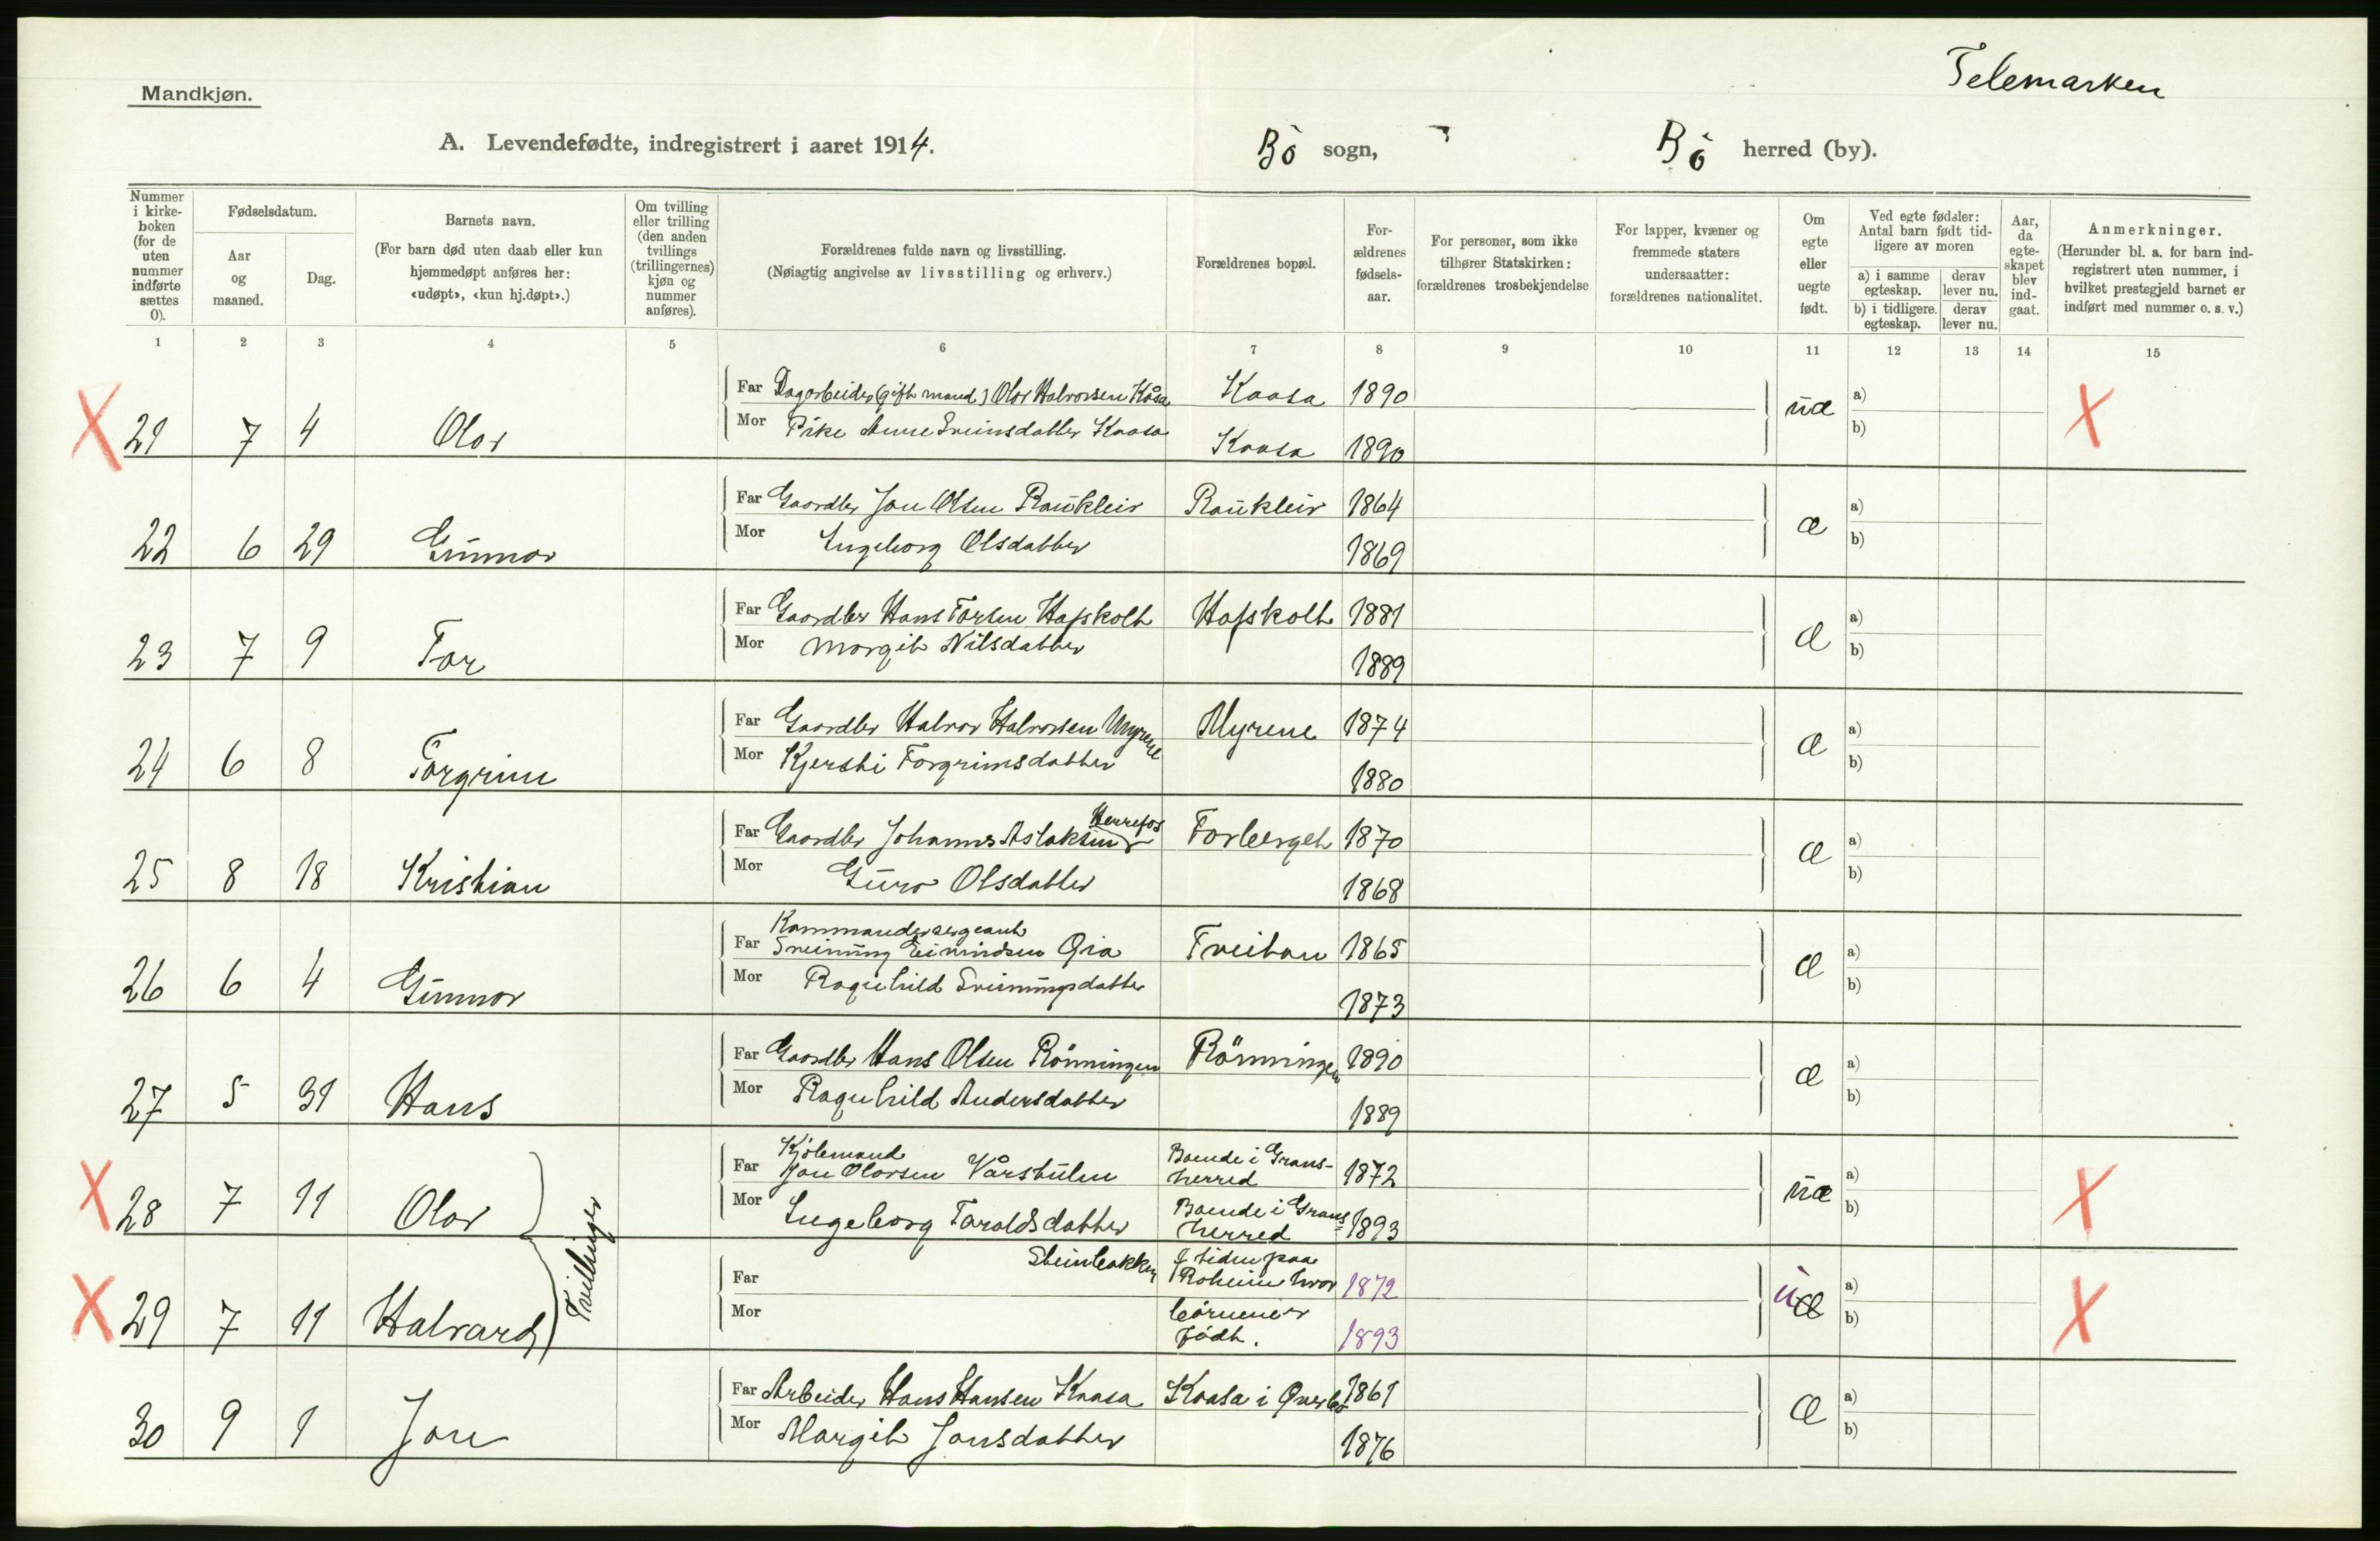 Telemarken
Mandkjøn.
A. Levendefødte, indregistrert i aaret 1914.
Bö sogn,
Bö herred (by).
Nummer i kirke-boken (for de uten nummer indførte sættes 0).
Fødselsdatum.
Aar og maaned.
Dag.
Barnets navn.
(For barn død uten daab eller kun hjemmedøpt anføres her: «udøpt», «kun hj.døpt».)
Om tvilling eller trilling (den anden tvillings (trillingernes) kjøn og nummer anføres).
Forældrenes fulde navn og livsstilling.
(Nøiagtig angivelse av livsstilling og erhverv.)
Forældrenes bopæl.
For-ældrenes fødsels-aar.
For personer, som ikke tilhører Statskirken: forældrenes trosbekjendelse
For lapper, kvæner og fremmede staters undersaatter: forældrenes nationalitet.
Om egte eller uegte født.
Ved egte fødsler: Antal barn født tid-ligere av moren
a) i samme egteskap.
derav lever nu.
b) i tidligere egteskap.
derav lever nu.
Aar, da egte-skapet blev ind-gaat.
Anmerkninger.
(Herunder bl. a. for barn ind-registrert uten nummer, i hvilket prestegjeld barnet er indført med nummer o. s. v.)
1 2 3 4 5 6 7 8 9 10 11 12 13 14 15
X 21 7 4 Olav Far Dagarbeider (gift mand) Olav Halvorsen Kåsa Kaasa 1890 uæ a) X
Mor Pike Anne Sveinsdatter Kaasa Kaasa 1890 b)
22 6 29 Gunnar Far Gaardbr Jon Olsen Raukleiv Raukleiv 1864 æ a)
Mor Ingeborg Olsdatter 1869 b)
23 7 9 Tor Far Gaardbr Hans Torsen Hafskolt Hafskolt 1881 æ a)
Mor Margit Nilsdatter 1889 b)
24 6 8 Torgrim Far Gaardbr Halvor Halvorsen Myrene Myrene 1874 æ a)
Mor Kjersti Torgrimsdatter 1880 b)
25 8 18 Kristian Far Gaardbr Johannes Aslaksen Herrefos Torberget 1870 æ a)
Mor Guro Olsdatter 1868 b)
Kommandersergeant
26 6 4 Gunnar Far Sveinung Eivindsen Tveitan 1865 æ a)
Mor Ragnhild Sveinungsdatter 1873 b)
27 5 31 Hans Far Gaardbr Hans Olsen Rönningen Rönningen 1890 æ a)
Mor Ragnhild Andersdatter 1889 b)
Tvillinger
X 28 7 11 Olav Far Jon Olavsen Boende i Grans-herred 1872 uæ a) X
Mor Ingeborg Taraldsdatter Boende i Grans=herred 1893 b)
Steinbakken
X 29 7 11 Halvard Far I tiden paa Roheim hvor 1872 uæ a) X
Mor börnene er födt. 1893 b)
30 9 1 Jon Far Arbeider Hans Hansen Kaasa Kaasa i Överbö 1861 æ a)
Mor Margit Jonsdatter 1876 b)